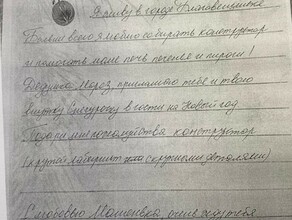 Я живу в городе Благовещенске
Больше всего я люблю собирать конструктор
и помогать маме печь печенье и пироги!
Дедушка Мороз, приглашаю тебя и твою
внучку Снегурочку в гости на Новый год
Подари мне пожалуйста конструктор
(крутой лабиринт с крупными деталями)
С любовью Матвейка, очень жду тебя